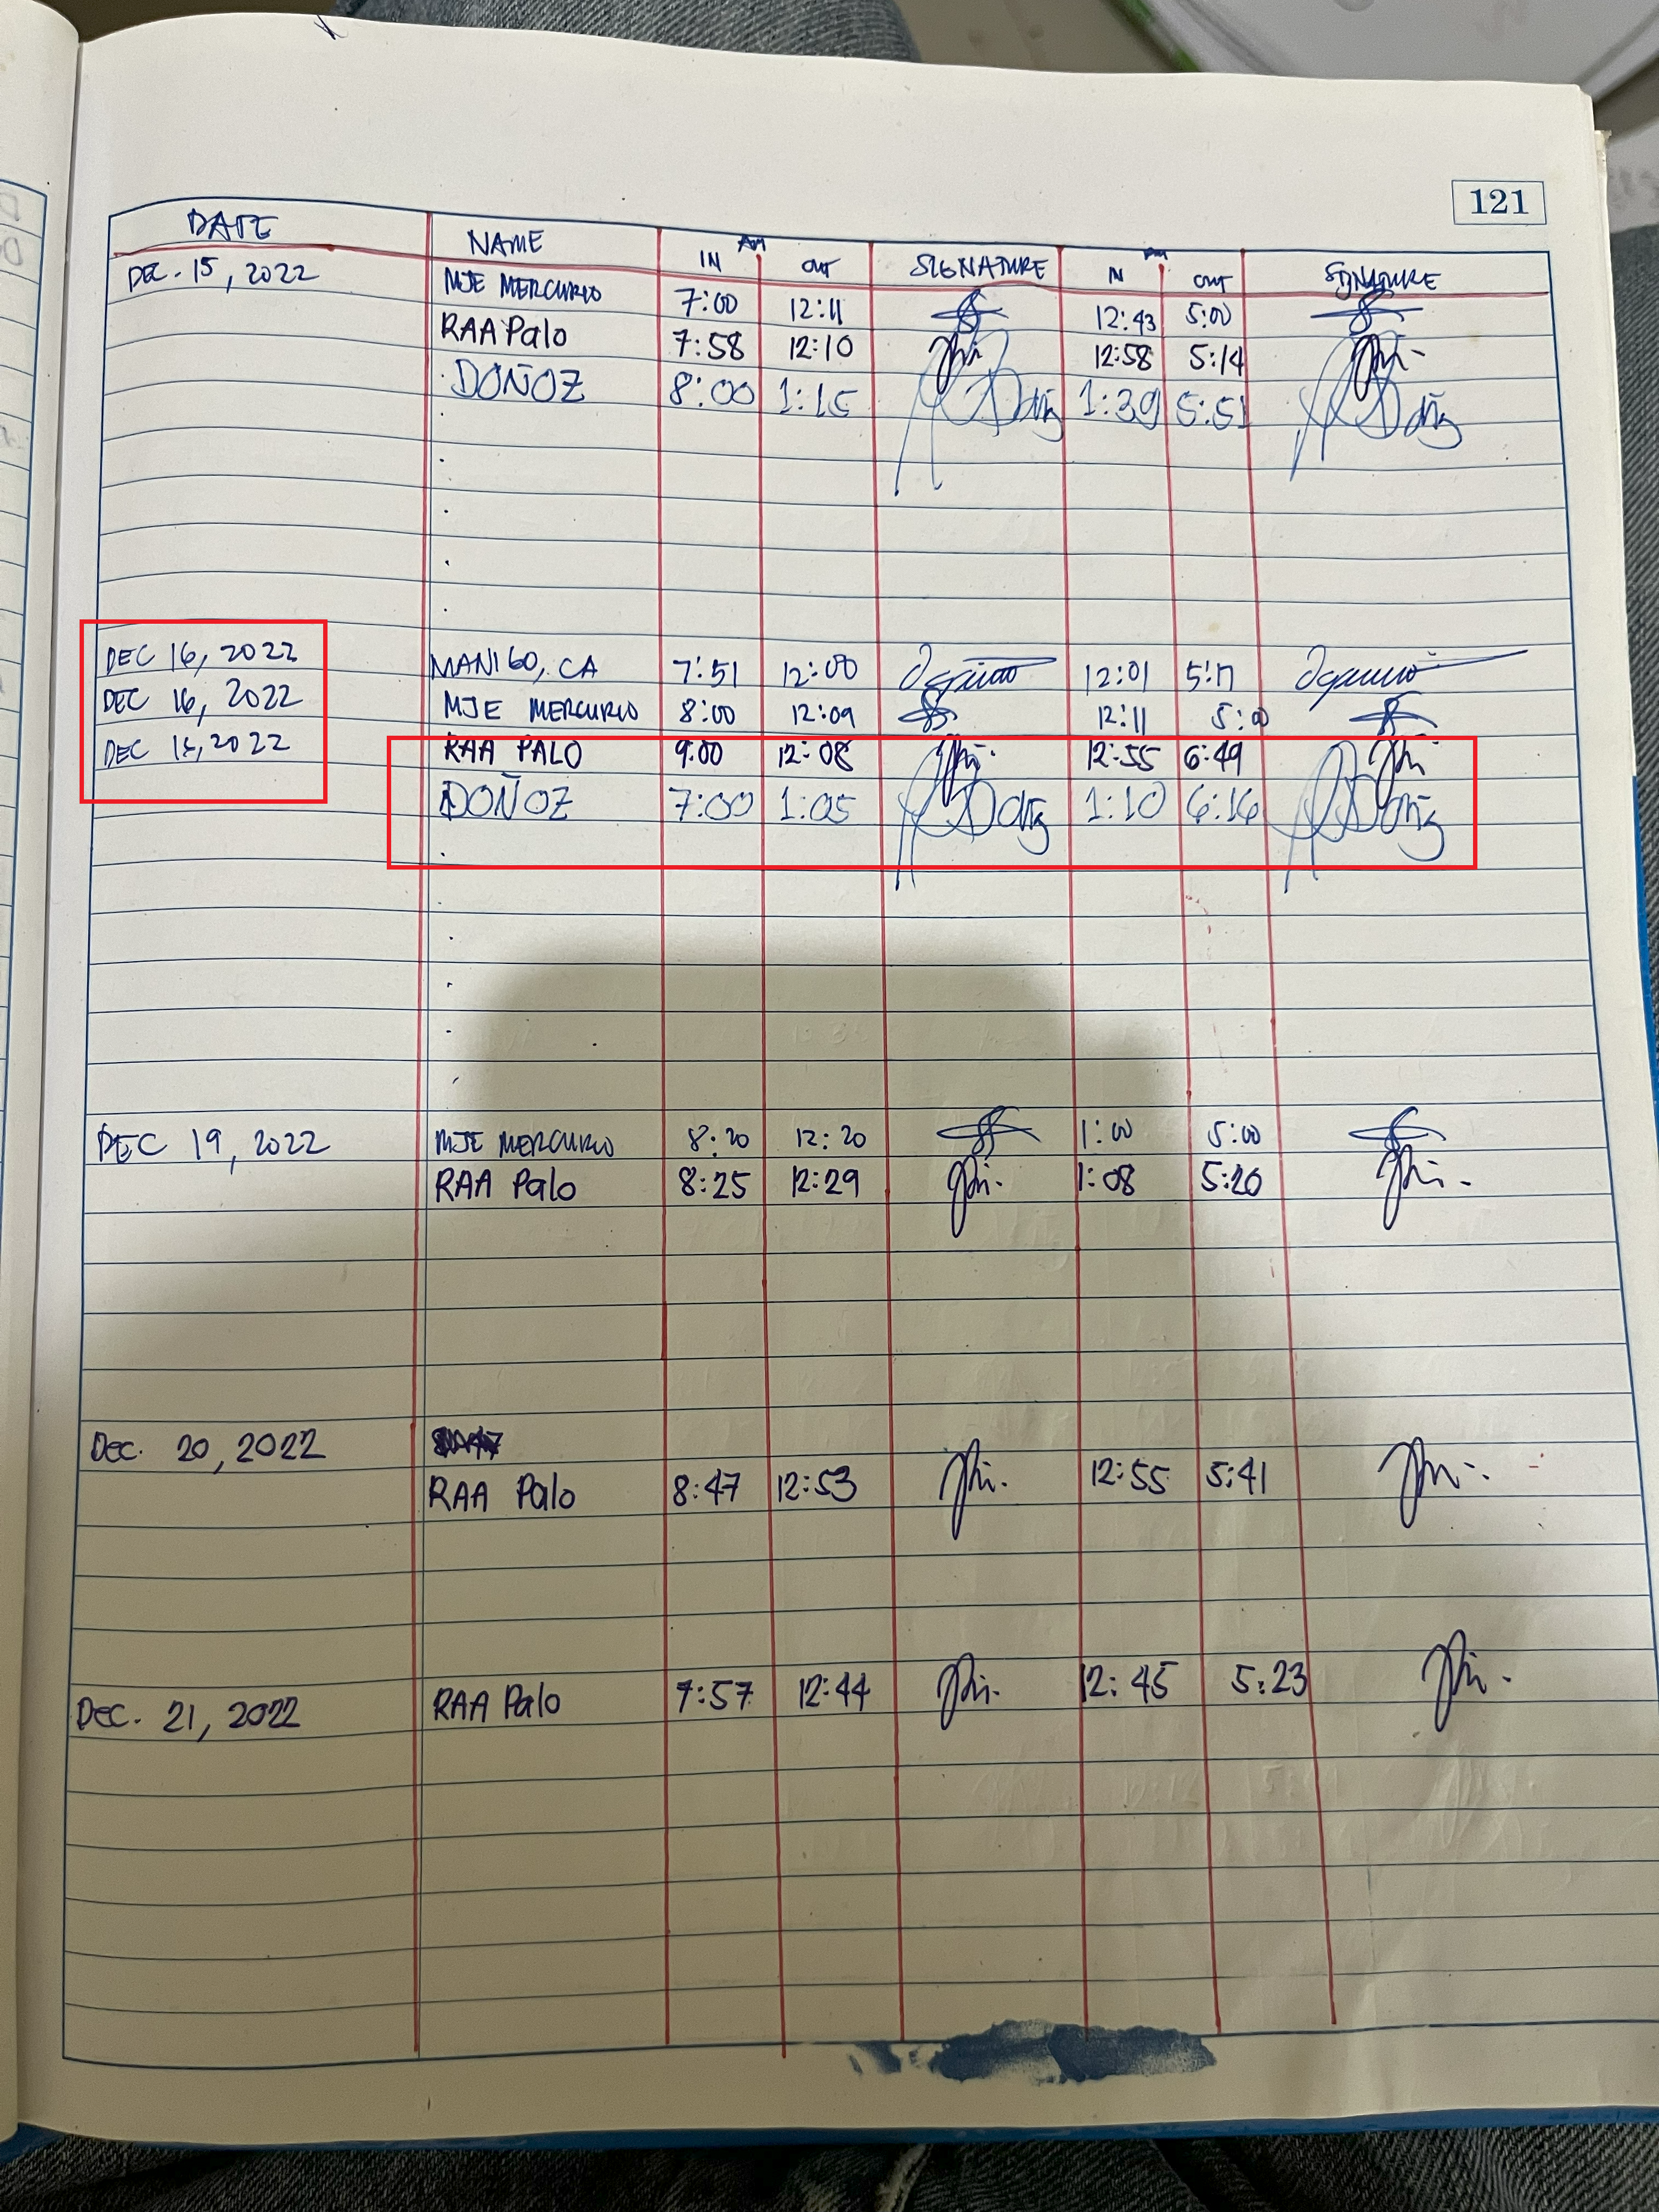 121
DATE NAME IN AM OUT SIGNATURE IN PM OUT SIGNATURE
DEC. 15, 2022 MJE MERCURIO 7:00 12:11 12:43 5:00
RAA Palo 7:58 12:10 12:58 5:14
DOÑOZ 8:00 1:15 1:39 5:51
DEC 16, 2022 MANIGO, CA 7:51 12:00 12:01 5:17
DEC 16, 2022 MJE MERCURIO 8:00 12:09 12:11 5:00
DEC 16, 2022 RAA PALO 9:00 12:08 12:55 6:49
DOÑOZ 7:00 1:05 1:10 6:16
DEC 19, 2022 MJE MERCURIO 8:20 12:20 1:00 5:00
RAA Palo 8:25 12:29 1:08 5:20
Dec. 20, 2022
RAA Palo 8:47 12:53 12:55 5:41
Dec. 21, 2022 RAA Palo 7:57 12:44 12:45 5:23